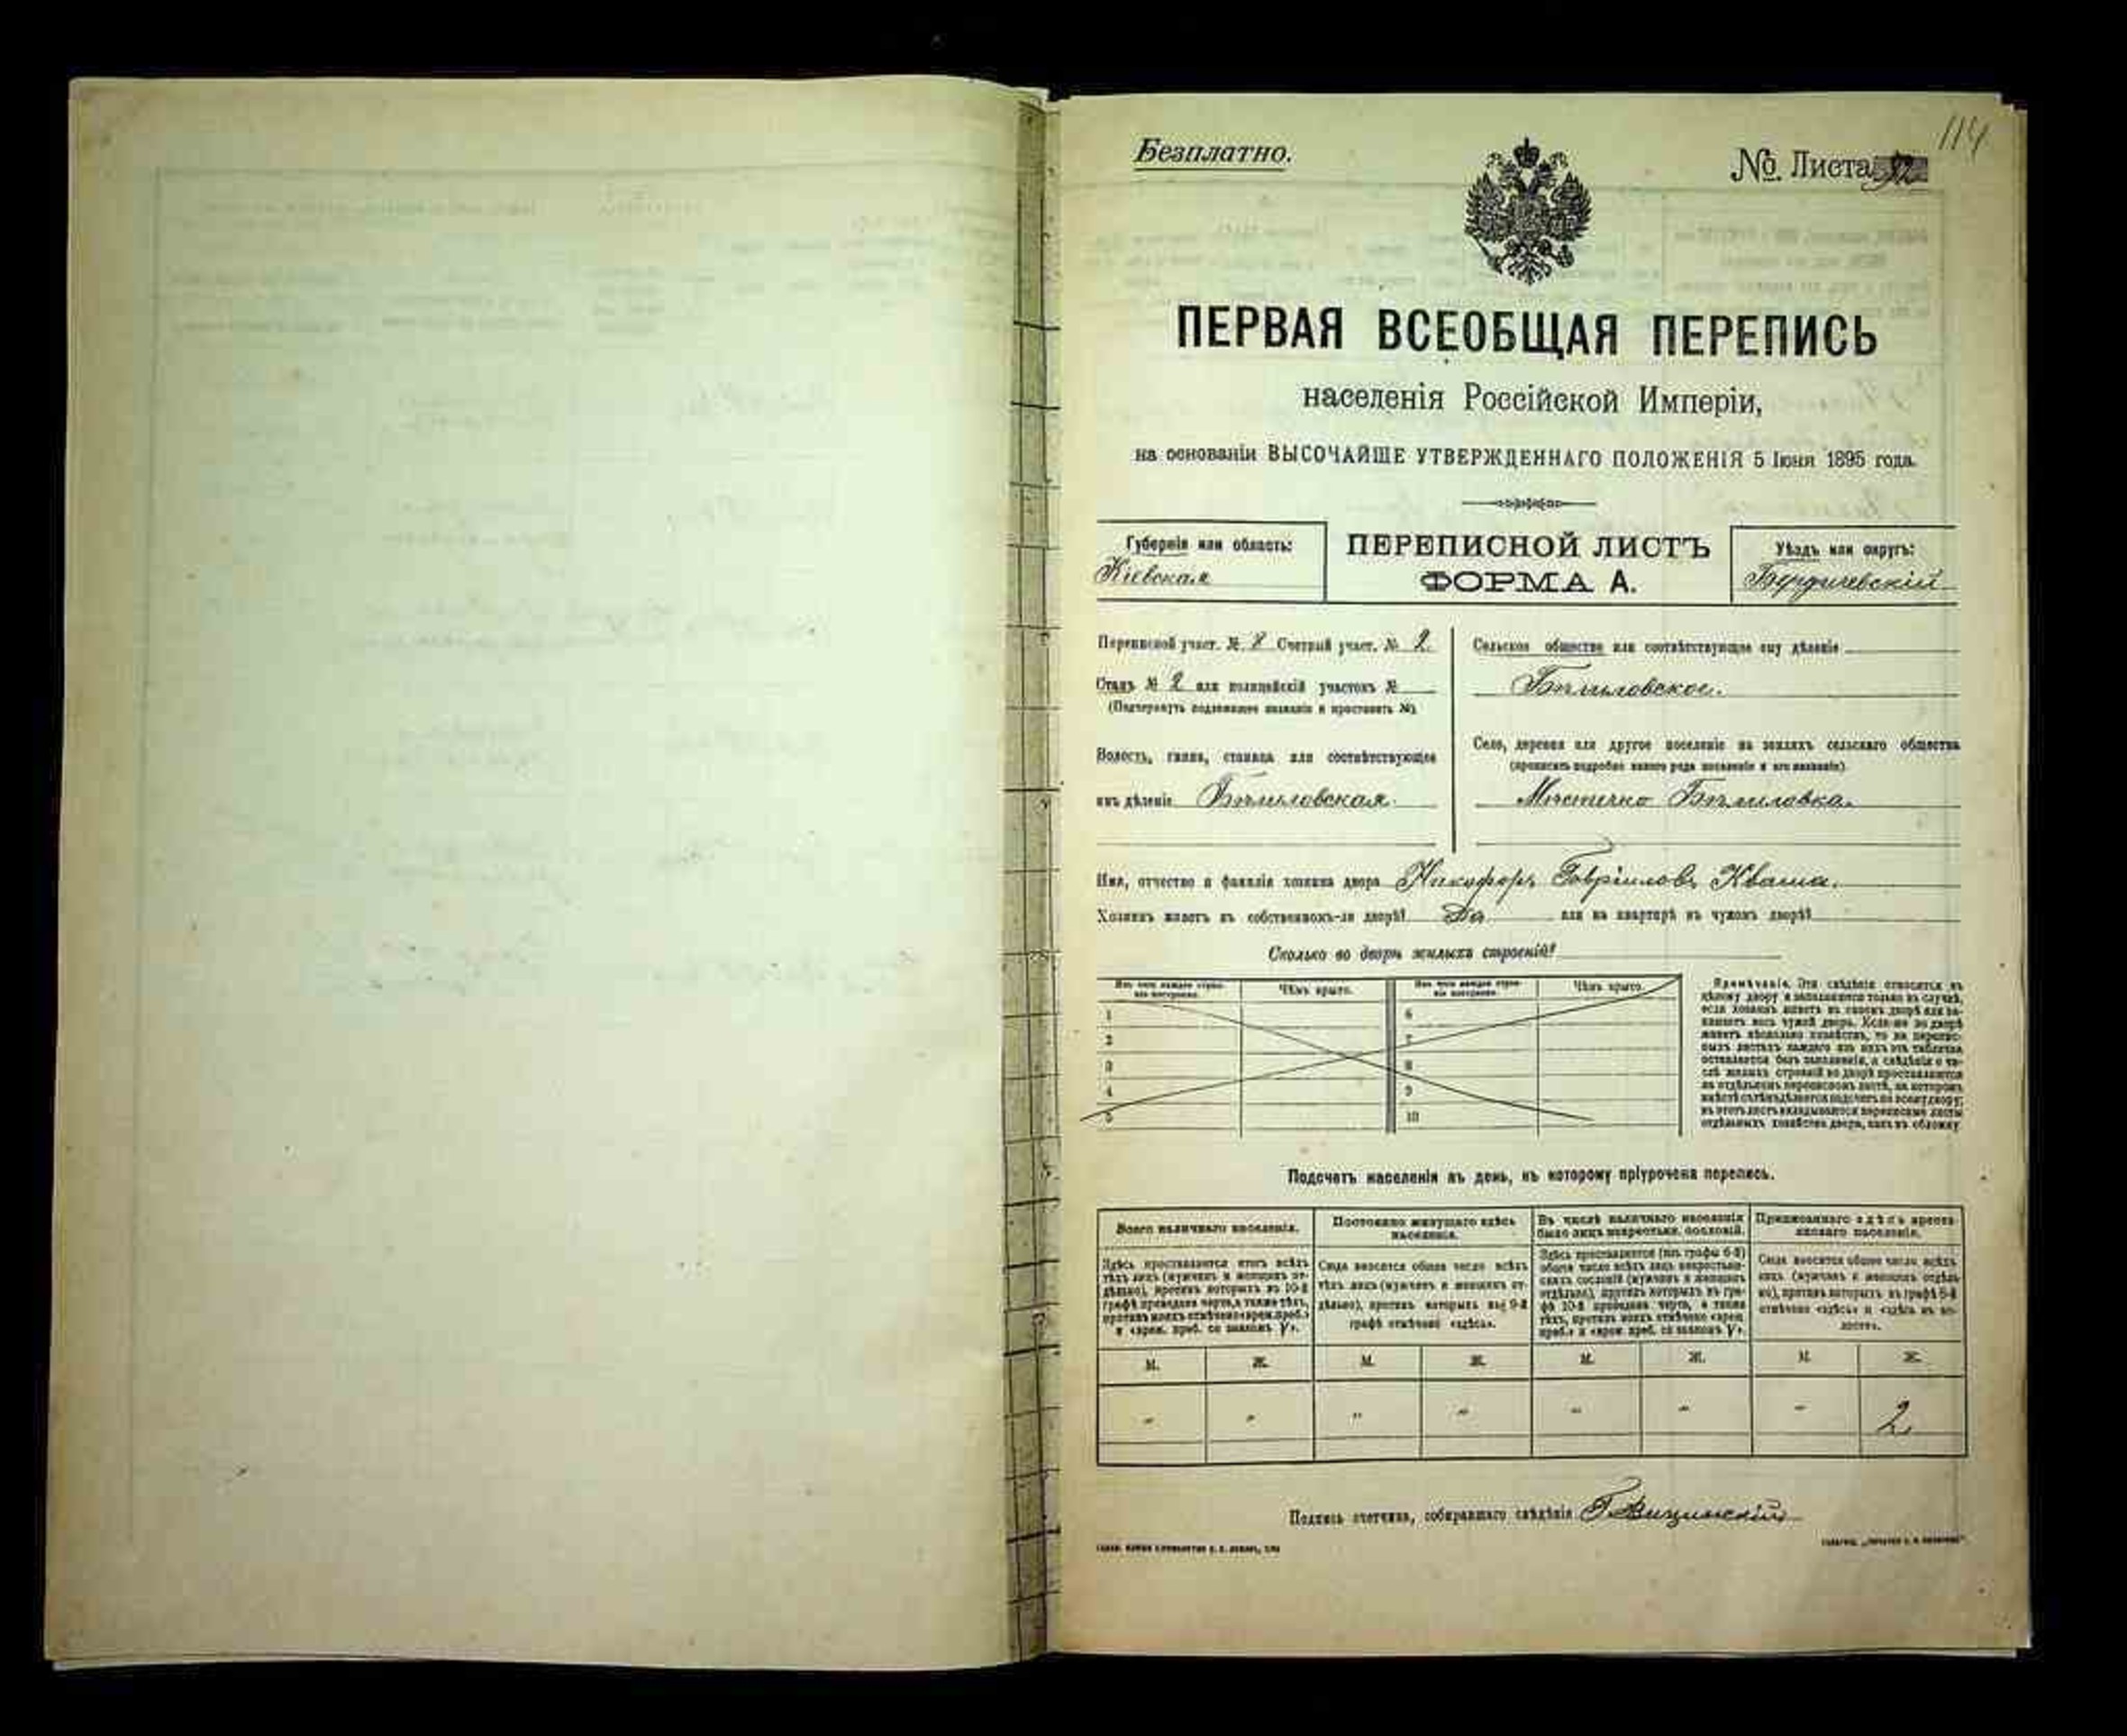 114
Безплатно.
№ Листа
ПЕРВАЯ ВСЕОБЩАЯ ПЕРЕПИСЬ
населенія Россійской Имперіи,
на основаніи ВЫСОЧАЙШЕ УТВЕРЖДЕННАГО ПОЛОЖЕНІЯ 5 Іюня 1895 года.
Губернія или область:
Кіевская
ПЕРЕПИСНОЙ ЛИСТЪ
ФОРМА А.
Уѣздъ или округъ:
Бердичевскій
Переписной участ. № 8 Счетный участ. № 2.
Станъ № 2 или полицейскій участокъ №
(Подчеркнуть подлежащее названіе и проставить №).
Волость, гмина, станица или соотвѣтствующее
имъ дѣленіе Бѣлиловская.
Сельское общество или соотвѣтствующее ему дѣленіе
Бѣлиловское.
Село, деревня или другое поселеніе на земляхъ сельскаго общества
(прописать подробно какого рода поселеніе и его названіе)
Мѣстечко Бѣлиловка.
Имя, отчество и фамилія хозяина двора Никофоръ Гавріиловъ Кваша.
Хозяинъ живетъ въ собственномъ-ли дворѣ? Да или на квартирѣ въ чужомъ дворѣ?
Сколько во дворѣ жилыхъ строеній?
Изъ чего каждое строе-
ніе построено.
Чѣмъ крыто.
Изъ чего каждое строе-
ніе построено.
Чѣмъ крыто.
1
2
3
4
5
6
7
8
9
10
Примѣчаніе. Эти свѣдѣнія относятся къ
цѣлому двору и заполняются только въ случаѣ,
если хозяинъ живетъ въ своемъ дворѣ или за-
нимаетъ весь чужой дворъ. Если-же во дворѣ
живетъ нѣсколько хозяйствъ, то на перепис-
ныхъ листахъ каждаго изъ нихъ эта табличка
оставляется безъ заполненія, а свѣдѣнія о чи-
слѣ жилыхъ строеній во дворѣ проставляются
на отдѣльномъ переписномъ листѣ, на которомъ
вмѣстѣ съ тѣмъ дѣлается подсчетъ по всему двору;
въ этотъ листъ вкладываются переписные листы
отдѣльныхъ хозяйствъ двора, какъ въ обложку.
Подсчетъ населенія въ день, къ которому пріурочена перепись.
Всего наличнаго населенія.
Здѣсь проставляется итогъ всѣхъ
тѣхъ лицъ (мужчинъ и женщинъ от-
дѣльно), противъ которыхъ въ 10-й
графѣ проведена черта, а также тѣхъ,
противъ коихъ отмѣчено «врем. преб.»
и «врем. преб. со знакомъ V».
Постоянно живущаго здѣсь
населенія.
Сюда вносится общее число всѣхъ
тѣхъ лицъ (мужчинъ и женщинъ от-
дѣльно), противъ которыхъ въ 9-й
графѣ отмѣчено «здѣсь».
Въ числѣ наличнаго населенія
было лицъ некрестьян. сословій.
Здѣсь проставляется (изъ графы 6-й)
общее число всѣхъ лицъ некрестьян-
скихъ сословій (мужчинъ и женщинъ
отдѣльно), противъ которыхъ въ гра-
фѣ 10-й проведена черта, а также
тѣхъ, противъ коихъ отмѣчено «врем.
преб.» и «врем. преб. со знакомъ V».
Приписаннаго здѣсь кресть-
янскаго населенія.
Сюда вносится общее число всѣхъ
лицъ (мужчинъ и женщинъ отдѣль-
но), противъ которыхъ въ графѣ 8-й
отмѣчено «здѣсь» и «здѣсь въ во-
лости».
М. Ж. М. Ж. М. Ж. М. Ж.
" " " " " " " 2
Подпись счетчика, собиравшаго свѣдѣнія